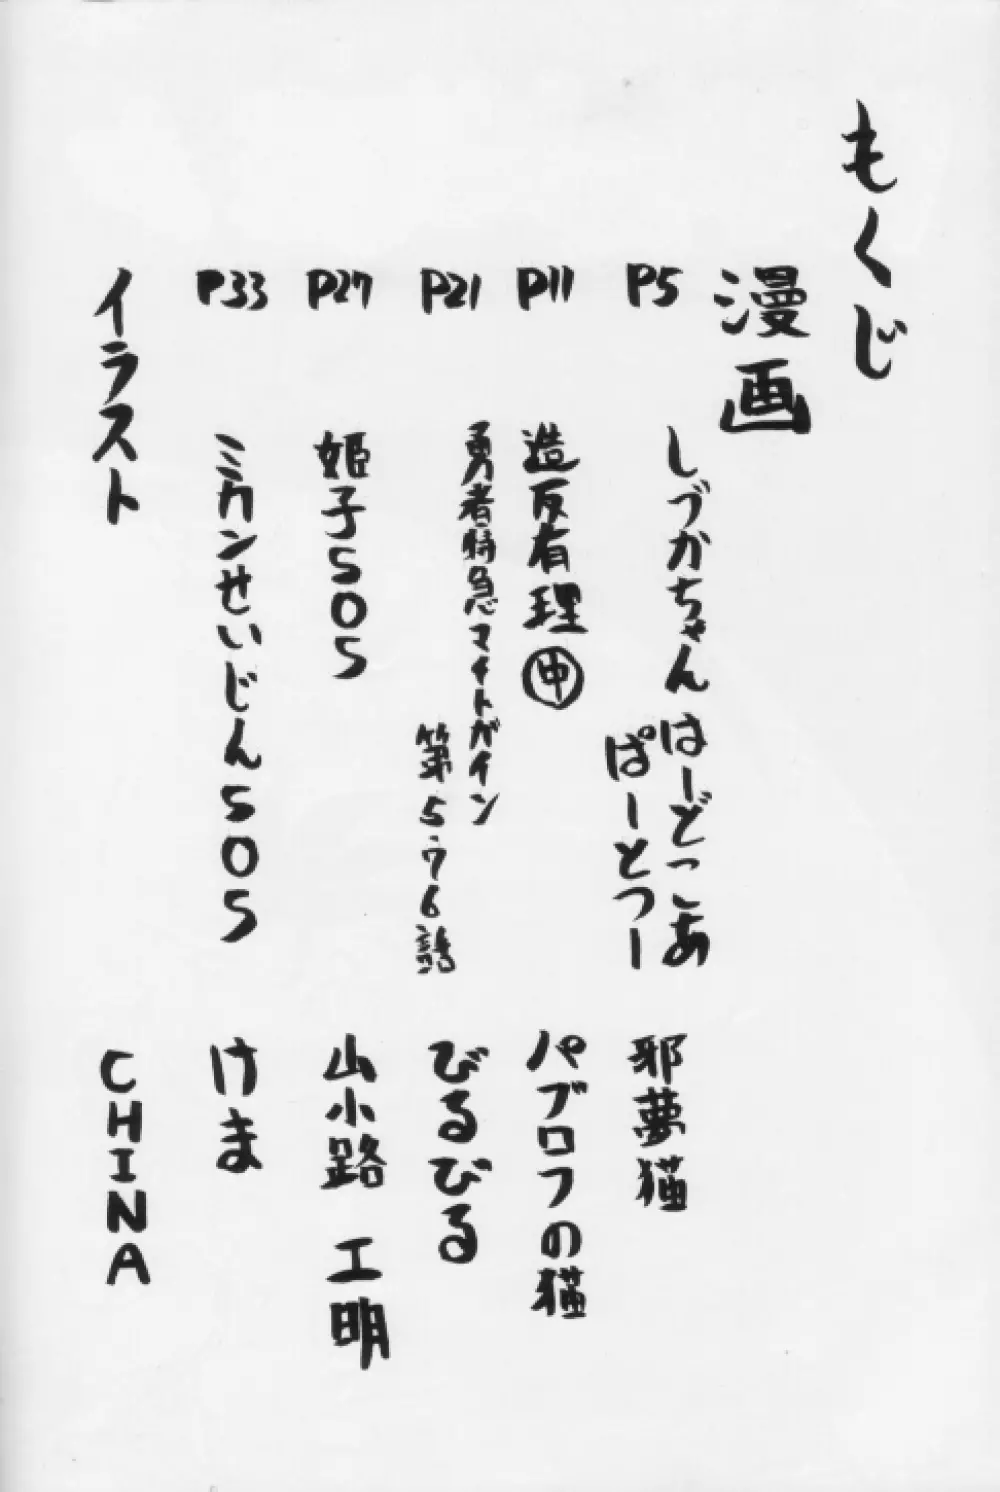 もくじ
漫画
P5 しづかちゃん はーどこあ
ぱーとつー 邪夢猫
P11 造反有理㊥ パブロフの猫
P21 勇者特急マイトガイン
第5.76話 びるびる
P27 姫子SOS 山小路 工明
P33 ミカンせいじんSOS けま
イラスト CHINA